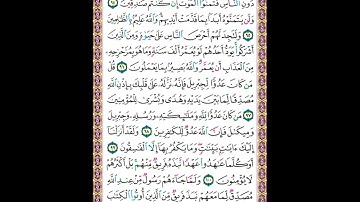 دُونِ ٱلنَّاسِ فَتَمَنَّوُاْ ٱلْمَوْتَ إِن كُنتُمْ صَٰدِقِينَ
٩٤ وَلَن يَتَمَنَّوْهُ أَبَدًۢا بِمَا قَدَّمَتْ أَيْدِيهِمْ وَٱللَّهُ عَلِيمٌۢ بِٱلظَّٰلِمِينَ
٩٥ وَلَتَجِدَنَّهُمْ أَحْرَصَ ٱلنَّاسِ عَلَىٰ حَيَوٰةٍ وَمِنَ ٱلَّذِينَ
أَشْرَكُواْ يَوَدُّ أَحَدُهُمْ لَوْ يُعَمَّرُ أَلْفَ سَنَةٍ وَمَا هُوَ بِمُزَحْزِحِهِۦ
مِنَ ٱلْعَذَابِ أَن يُعَمَّرَ وَٱللَّهُ بَصِيرٌۢ بِمَا يَعْمَلُونَ ٩٦ قُلْ
مَن كَانَ عَدُوًّا لِّجِبْرِيلَ فَإِنَّهُۥ نَزَّلَهُۥ عَلَىٰ قَلْبِكَ بِإِذْنِ ٱللَّهِ
مُصَدِّقًا لِّمَا بَيْنَ يَدَيْهِ وَهُدًى وَبُشْرَىٰ لِلْمُؤْمِنِينَ
٩٧ مَن كَانَ عَدُوًّا لِّلَّهِ وَمَلَٰٓئِكَتِهِۦ وَرُسُلِهِۦ وَجِبْرِيلَ
وَمِيكَىٰلَ فَإِنَّ ٱللَّهَ عَدُوٌّ لِّلْكَٰفِرِينَ ٩٨ وَلَقَدْ أَنزَلْنَآ
إِلَيْكَ ءَايَٰتٍۭ بَيِّنَٰتٍ وَمَا يَكْفُرُ بِهَآ إِلَّا ٱلْفَٰسِقُونَ ٩٩
أَوَكُلَّمَا عَٰهَدُواْ عَهْدًا نَّبَذَهُۥ فَرِيقٌ مِّنْهُم بَلْ أَكْثَرُهُمْ
لَا يُؤْمِنُونَ ١٠٠ وَلَمَّا جَآءَهُمْ رَسُولٌ مِّنْ عِندِ ٱللَّهِ
مُصَدِّقٌ لِّمَا مَعَهُمْ نَبَذَ فَرِيقٌ مِّنَ ٱلَّذِينَ أُوتُواْ ٱلْكِتَٰبَ